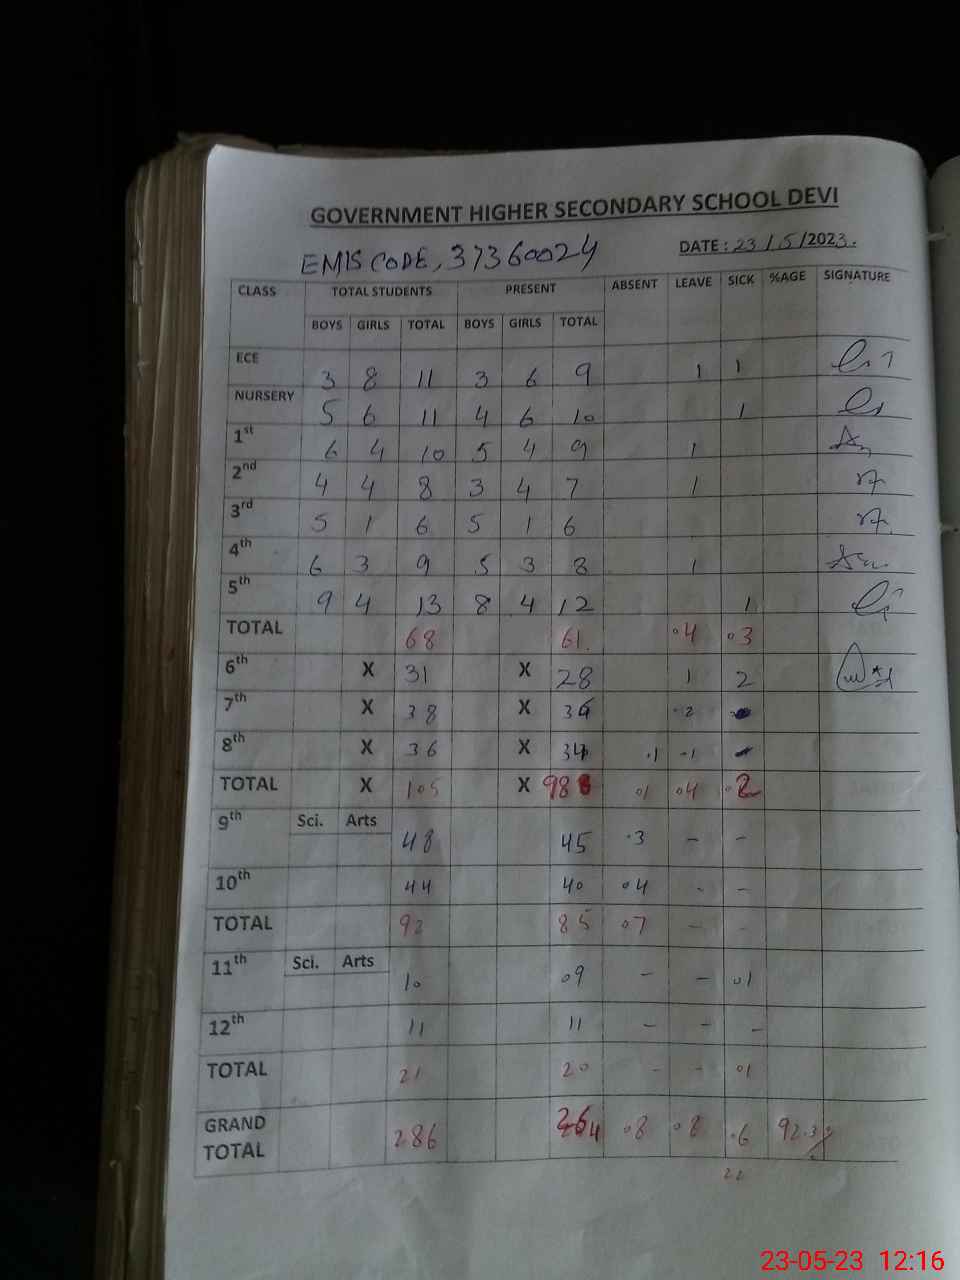 GOVERNMENT HIGHER SECONDARY SCHOOL DEVI
EMIS CODE, 37360024 DATE : 23/5/2023.
CLASS TOTAL STUDENTS PRESENT ABSENT LEAVE SICK %AGE SIGNATURE
BOYS GIRLS TOTAL BOYS GIRLS TOTAL
ECE 3 8 11 3 6 9 1 1
NURSERY 5 6 11 4 6 10 1
1st 6 4 10 5 4 9 1
2nd 4 4 8 3 4 7 1
3rd 5 1 6 5 1 6
4th 6 3 9 5 3 8 1
5th 9 4 13 8 4 12 1
TOTAL 68 61. .4 .3
6th X 31 X 28 1 2
7th X 38 X 36 .2
8th X 36 X 34 .1 -1
TOTAL X 105 X 98 01 04 .2
9th Sci. Arts 48 45 .3 - -
10th 44 40 04 - -
TOTAL 92 85 07 - -
11th Sci. Arts 10 09 - - 01
12th 11 11 - - -
TOTAL 21 20 - - 01
GRAND TOTAL 286 264 .8 .8 .6 92.3%
22
23-05-23 12:16